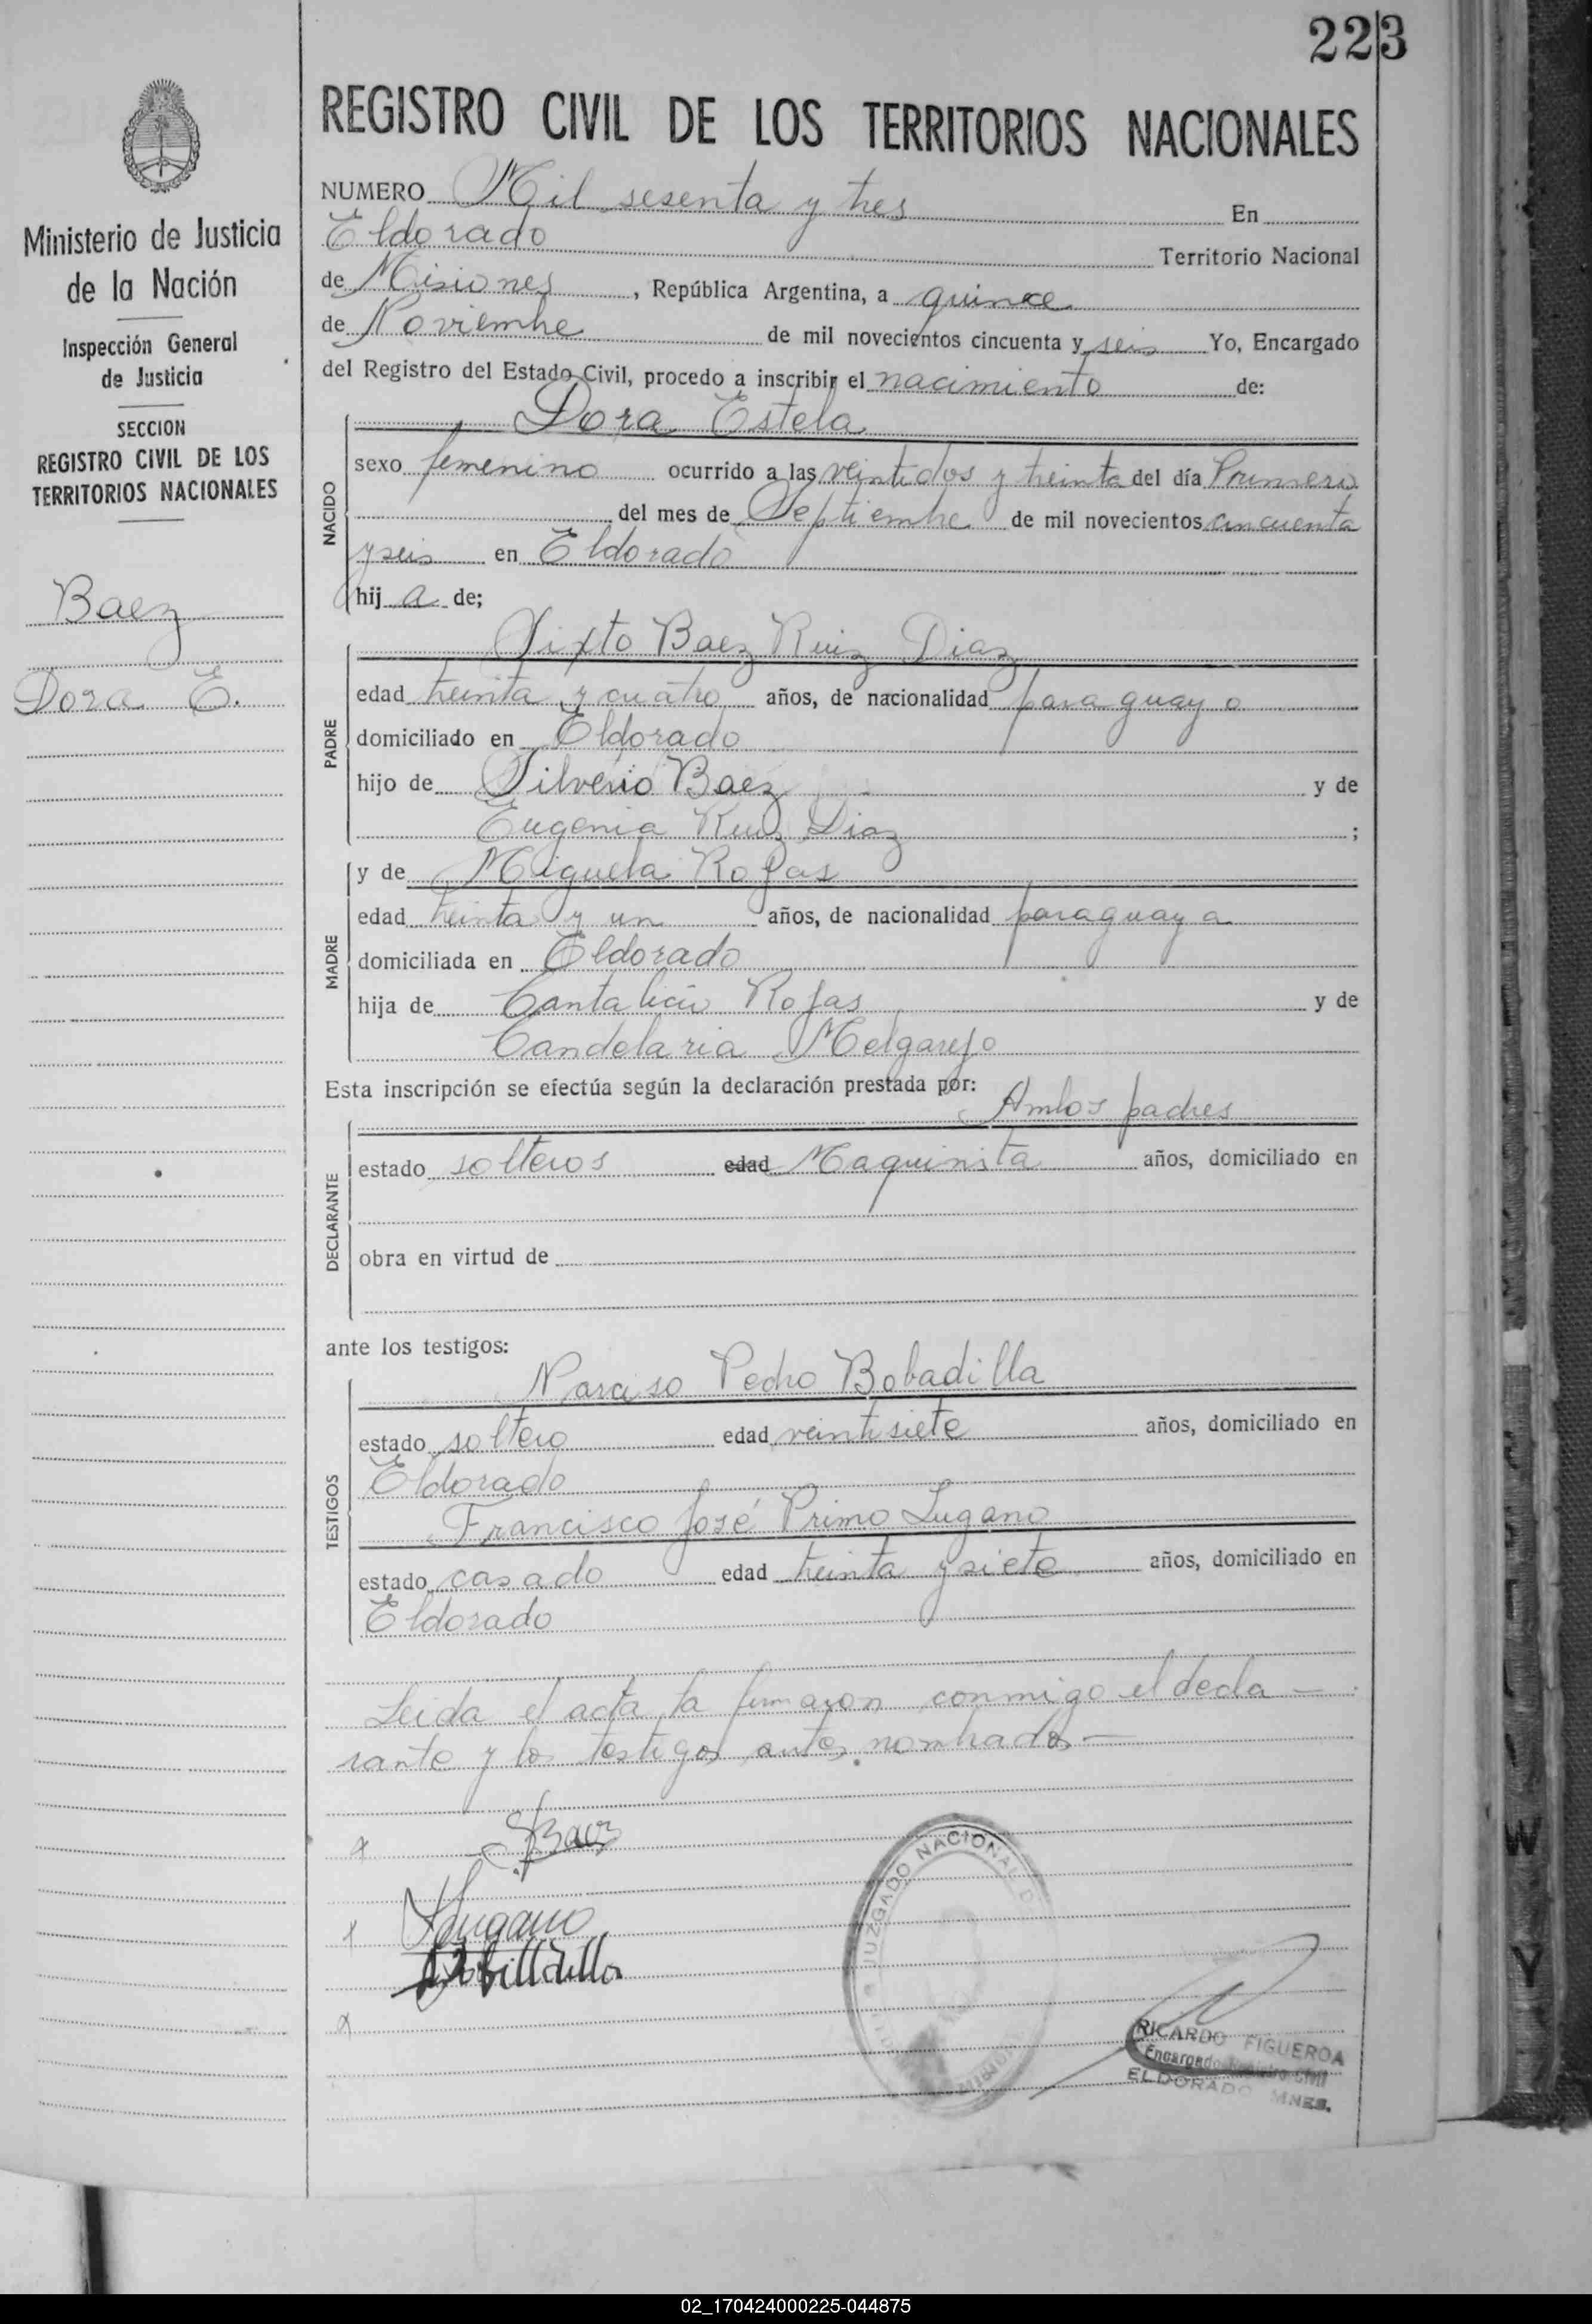 223
REGISTRO CIVIL DE LOS TERRITORIOS NACIONALES
Ministerio de Justicia
de la Nación
Inspección General
de Justicia
SECCION
REGISTRO CIVIL DE LOS
TERRITORIOS NACIONALES
Baez
Dora E.
NUMERO Mil sesenta y tres En
Eldorado Territorio Nacional
de Misiones, República Argentina, a quince
de Noviembre de mil novecientos cincuenta y seis Yo, Encargado
del Registro del Estado Civil, procedo a inscribir el nacimiento de:
NACIDO
Dora Estela
sexo femenino ocurrido a las veintidos y treinta del día Primero
del mes de Septiembre de mil novecientos cincuenta
y seis en Eldorado
hij a de;
PADRE
Sixto Baez Ruiz Diaz
edad treinta y cuatro años, de nacionalidad paraguayo
domiciliado en Eldorado
hijo de Silverio Baez y de
Eugenia Ruiz Diaz ;
MADRE
y de Miguela Rojas
edad treinta y un años, de nacionalidad paraguaya
domiciliada en Eldorado
hija de Cantalicio Rojas y de
Candelaria Melgarejo
Esta inscripción se efectúa según la declaración prestada por:
Ambos padres
DECLARANTE
estado solteros edad Maquinista años, domiciliado en
obra en virtud de
ante los testigos:
TESTIGOS
Narciso Pedro Bobadilla
estado soltero edad veintisiete años, domiciliado en
Eldorado
Francisco José Primo Lugano
estado casado edad treinta y siete años, domiciliado en
Eldorado
Leida el acta, la firmaron conmigo el decla-
rante y los testigos antes nombrados-
x SBaez
x Lugano
x
JUZGADO NACIONAL D
RICARDO FIGUEROA
Encargado Registro Civil
ELDORADO MNES.
02_170424000225-044875